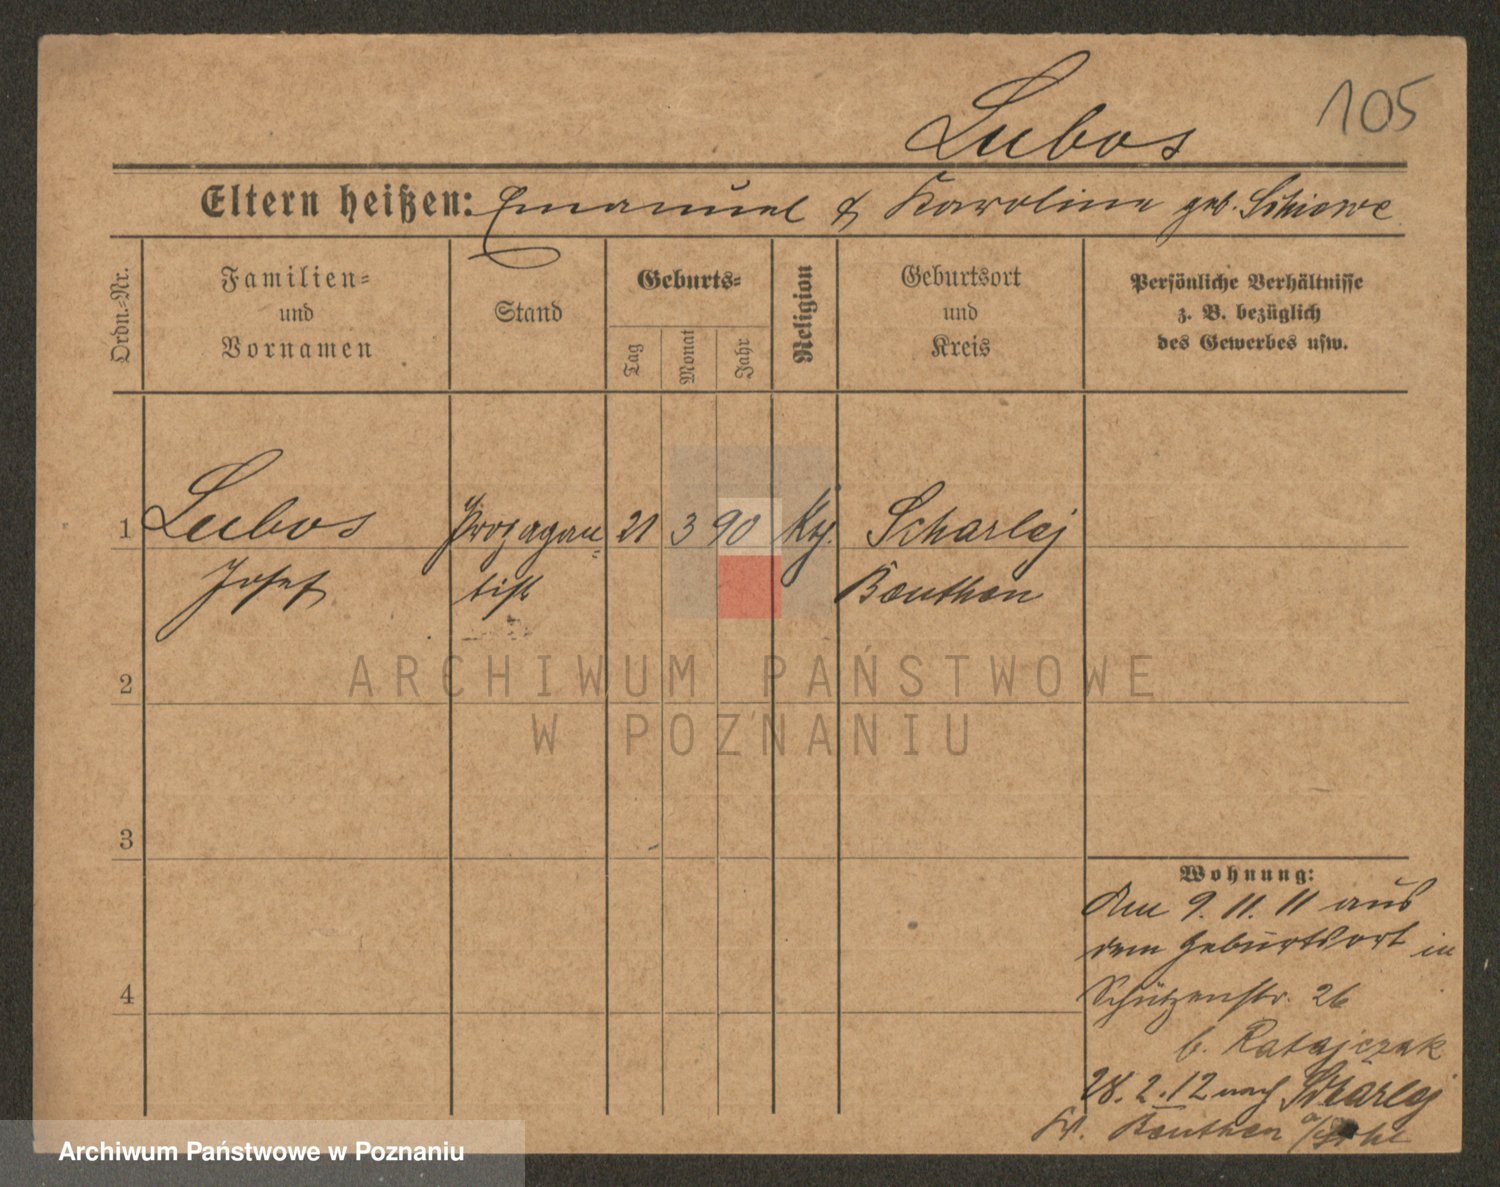 Lubos
105
Eltern heißen: Emanuel & Karoline geb. Schiewe
Ordn.-Nr.
Familien-
und
Vornamen
Stand
Geburts-
Tag
Monat
Jahr
Religion
Geburtsort
und
Kreis
Persönliche Verhältnisse
z. B. bezüglich
des Gewerbes usw.
1
Lubos
Josef
Propagan-
dist
21
3
90
Scharlej
Beuthen
2
ARCHIWUM PAŃSTWOWE
W POZNANIU
3
Wohnung:
Am 9. 11. 11 aus
dem Geburtsort in
4
Schützenstr. 26
b. Ratajczak
28. 2. 12 nach Scharlej
Kr. Beuthen
Archiwum Państwowe w Poznaniu